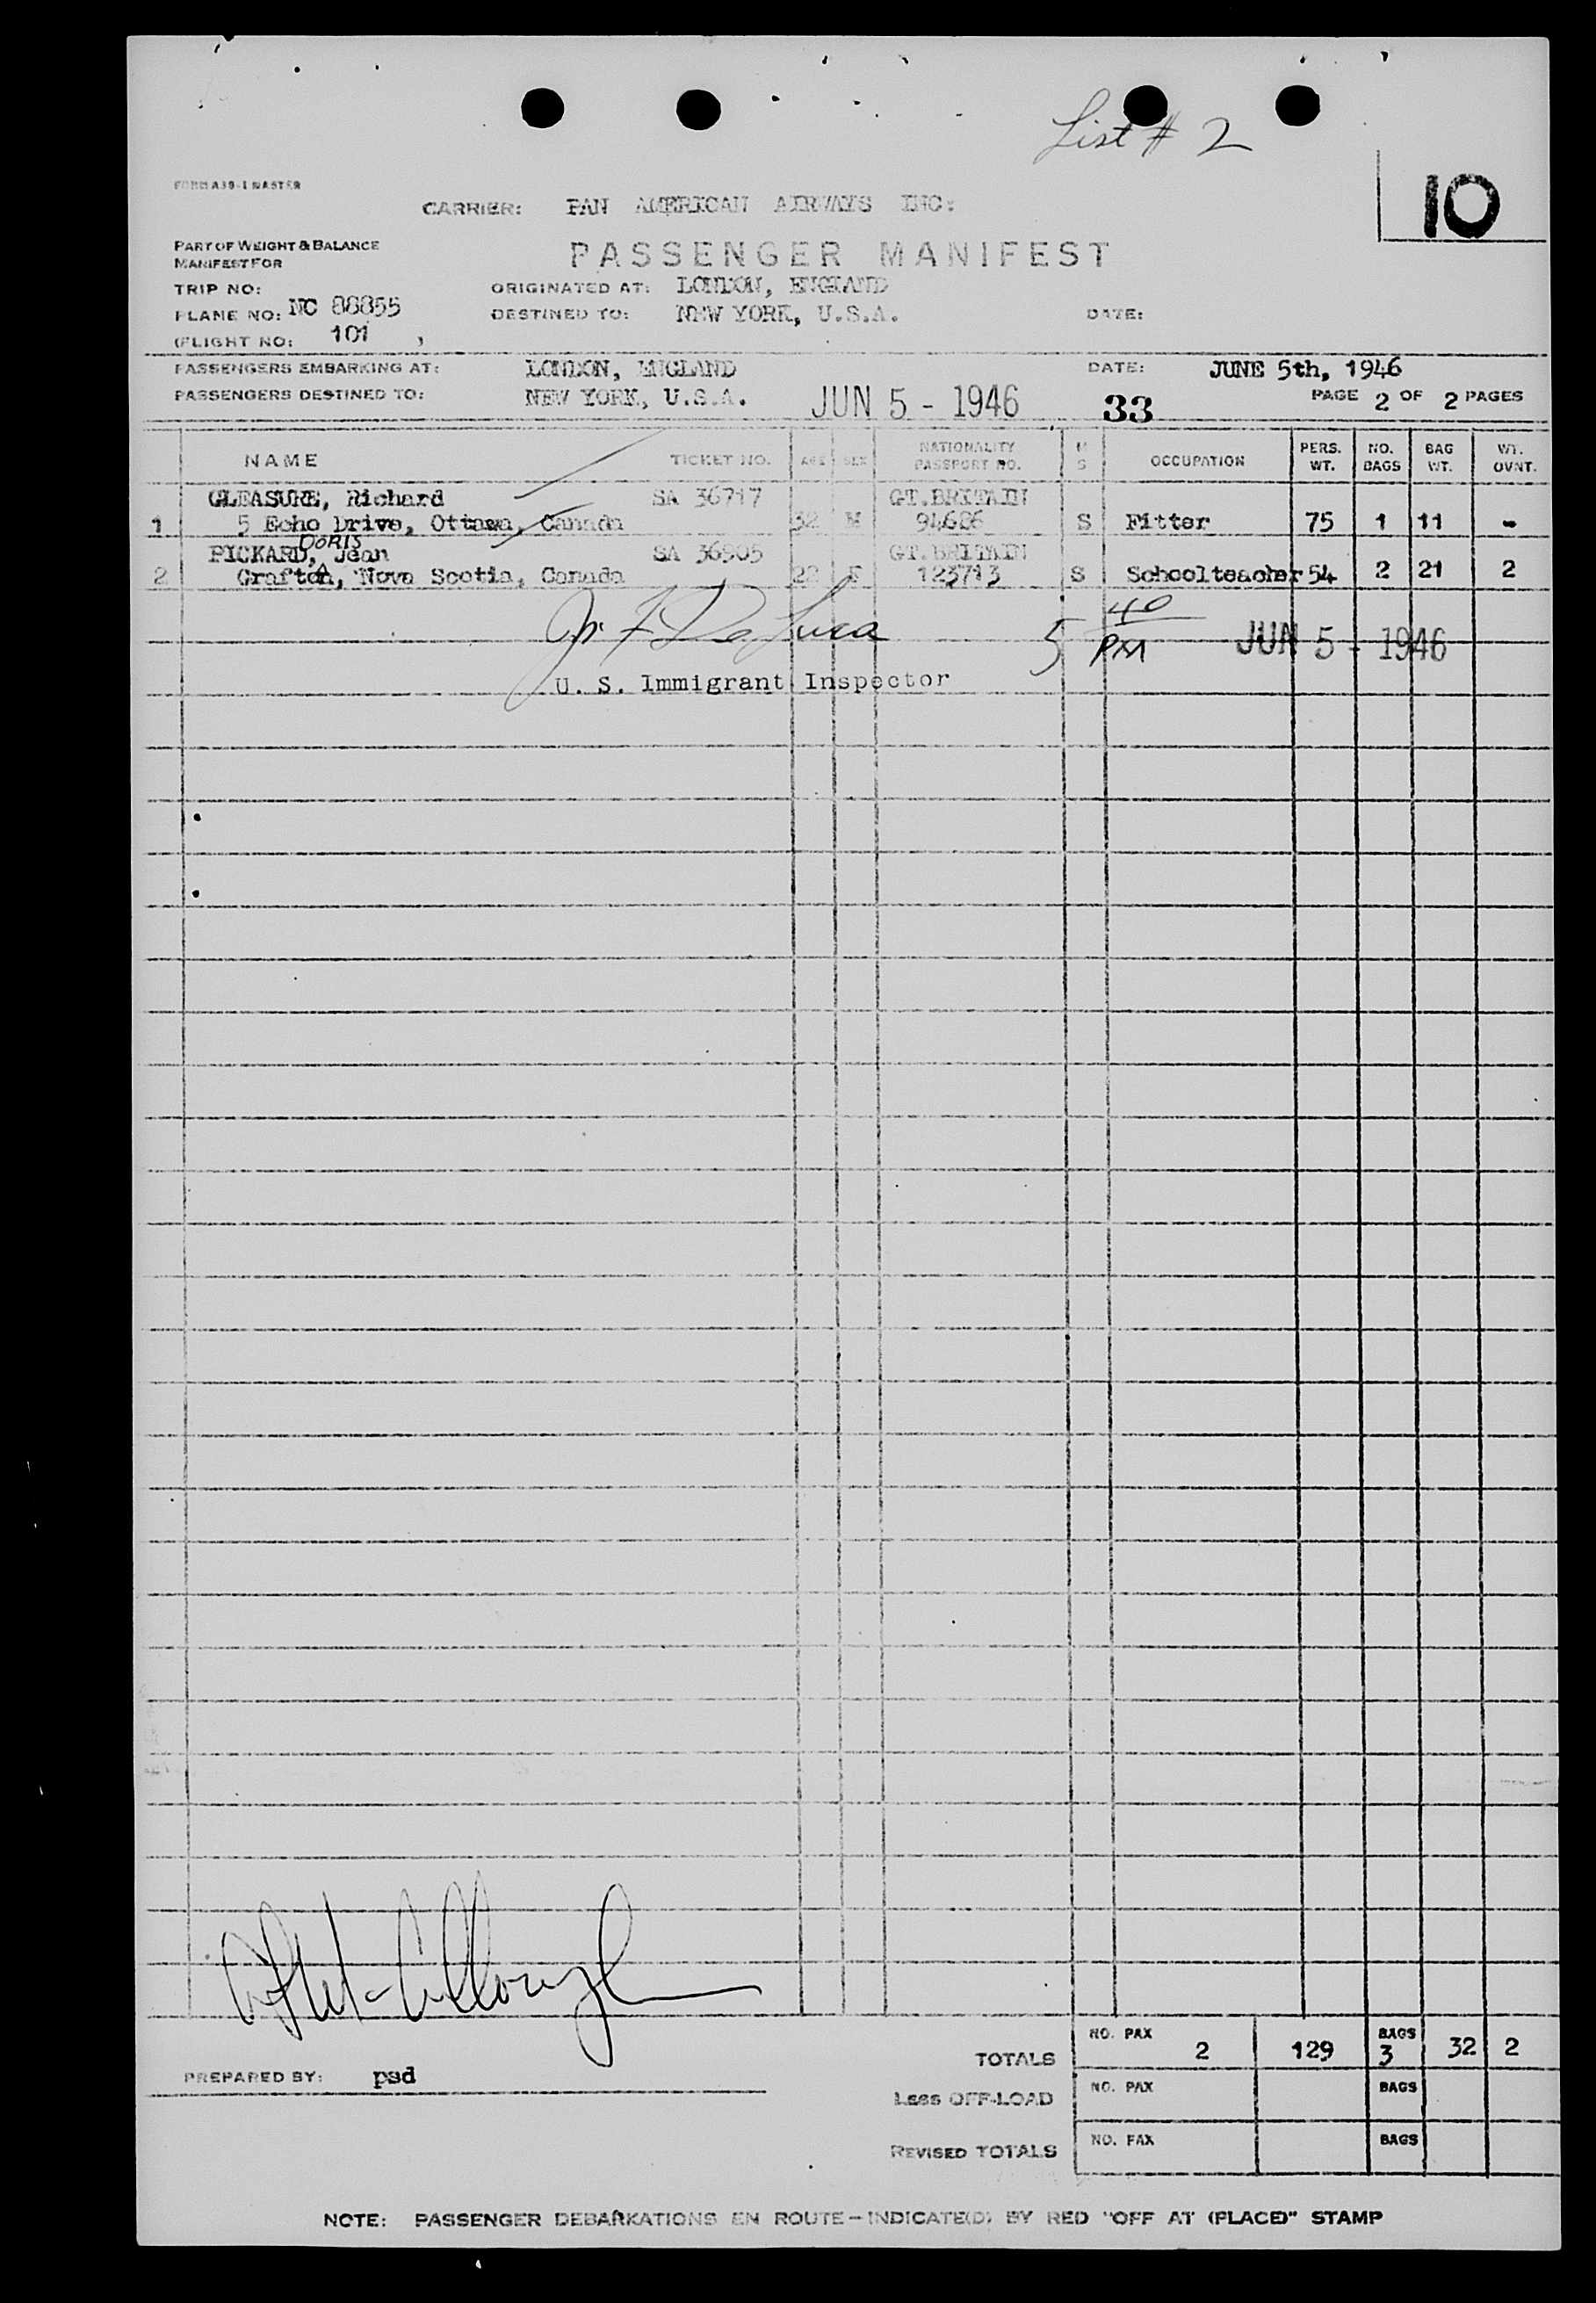 List # 2
FORM A39-1 MASTER
10
CARRIER: PAN AMERICAN AIRWAYS INC:
PART OF WEIGHT & BALANCE
MANIFEST FOR
PASSENGER MANIFEST
TRIP NO:
ORIGINATED AT: LONDON, ENGLAND
PLANE NO: NC 88855
DESTINED TO: NEW YORK, U.S.A.
DATE:
(FLIGHT NO: 101 )
PASSENGERS EMBARKING AT: LONDON, ENGLAND DATE: JUNE 5th, 1946
PASSENGERS DESTINED TO: NEW YORK, U.S.A. JUN 5 - 1946 33 PAGE 2 OF 2 PAGES
NAME TICKET NO. AGE SEX NATIONALITY PASSPORT NO. M S OCCUPATION PERS. WT. NO. BAGS BAG WT. WT. OVNT.
GLEASURE, Richard SA 36717 GT.BRITAIN
1 5 Echo Drive, Ottawa, Canada 32 M 94686 S Fitter 75 1 11 -
DORIS
PICKARD, Jean SA 36905 GT.BRITAIN
2 Grafton, Nova Scotia, Canada 22 F 123713 S Schoolteacher 54 2 21 2
5 40 PM JUN 5 - 1946
U. S. Immigrant Inspector
TOTALS NO. PAX 2 129 BAGS 3 32 2
PREPARED BY: psd
Less OFF-LOAD NO. PAX BAGS
REVISED TOTALS NO. PAX BAGS
NOTE: PASSENGER DEBARKATIONS EN ROUTE - INDICATE(D) BY RED "OFF AT (PLACE)" STAMP